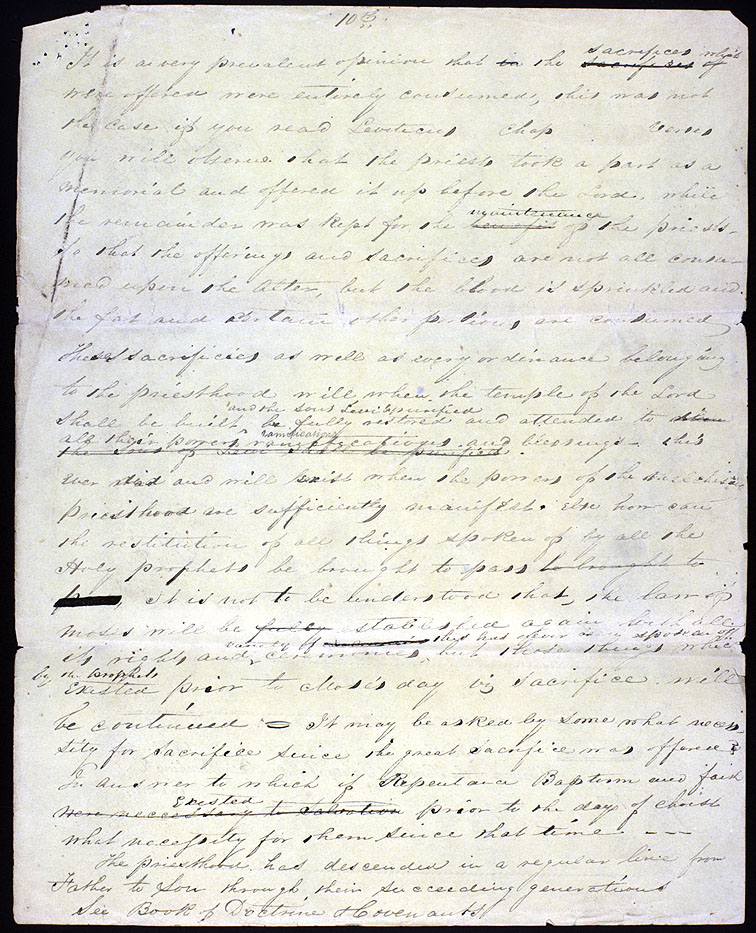 10th
It is a very prevalent opinion that in the sacrifices sacrifices of which
were offered were entirely consumed, this was not
the case if you read Leviticus chap Verses
you will observe that the priests took a part as a
memorial and offered it up before the Lord, while
the remainder was kept for the benefit maintenance of the priests.
So that the offerings and sacrifices are not all consu-
med upon the Alter, but the blood is sprinkled and
the fat and certain other portions are consumed
These sacrifices as well as every ordinance belonging
to the priesthood will when the temple of the Lord
and the Sons Levi be purified
shall be built be fully restored and attended to then
all their powers ramifications ramifications and blessings— this
the Sons of Levi shall be purified.
ever did and will exist when the powers of the Melchisedec
priesthood are sufficiently manifest. Else how can
the restitution of all things spoken of by all the
Holy prophets be brought to pass to brought to
It is not to be understood that, the law of
moses will be fully established again with all
its rights and variety of ceremonies, this has never been spoken of
by the prophets but those things which
Existed prior to Moses's day viz Sacrifice will
be continued — It may be asked by some what neces-
sity for Sacrifice since the great Sacrifice was offered?
In answer to which if Repentance Baptism and faith
Existed
were necessary to Salvation prior to the day of Christ
what necessity for them since that time — — —
The priesthood has descended in a regular line from
Father to Son through their succeeding generations
See Book of Doctrine & Covenants